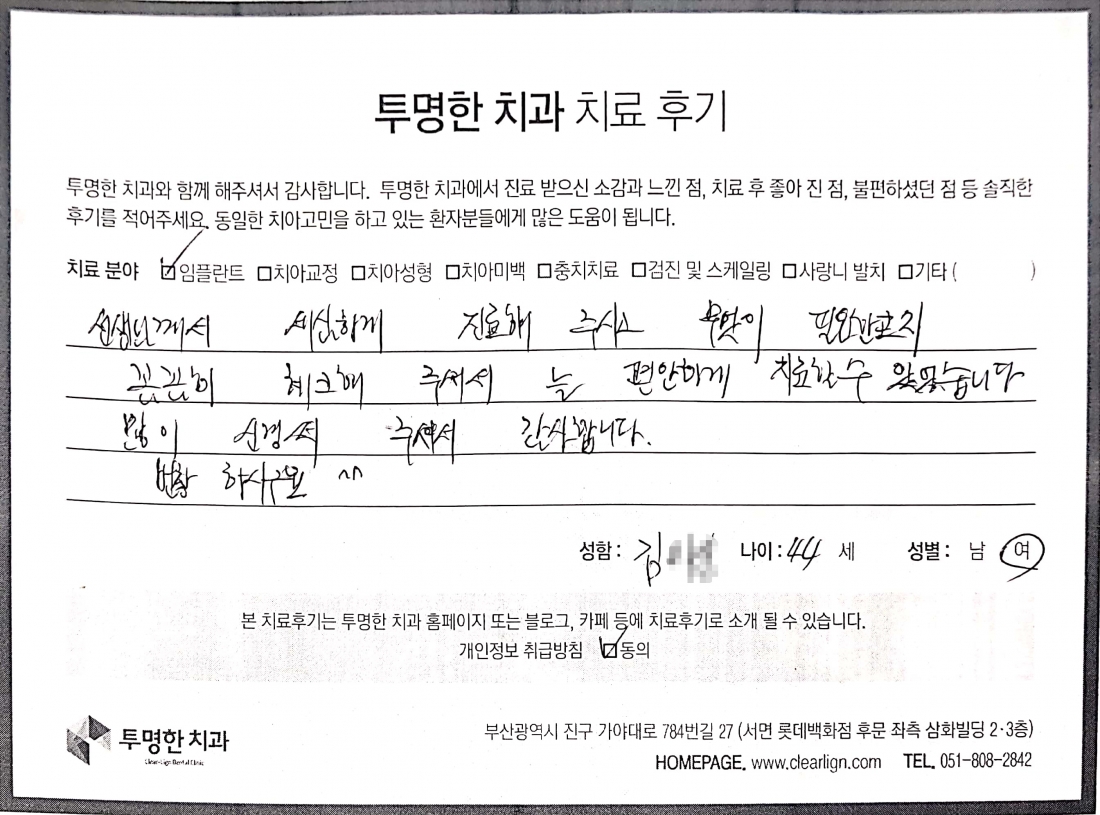 투명한 치과 치료 후기
투명한 치과와 함께 해주셔서 감사합니다. 투명한 치과에서 진료 받으신 소감과 느낀 점, 치료 후 좋아 진 점, 불편하셨던 점 등 솔직한
후기를 적어주세요. 동일한 치아고민을 하고 있는 환자분들에게 많은 도움이 됩니다.
치료 분야 ☑임플란트 □치아교정 □치아성형 □치아미백 □충치치료 □검진 및 스케일링 □사랑니 발치 □기타 ( )
선생님께서 세심하게 진료해 주시고 무엇이 필요한지
꼼꼼히 체크해 주셔서 늘 편안하게 치료할 수 있었습니다
많이 신경써 주셔서 감사합니다.
번창 하시구요 ^^
성함 : 김 나이 : 44 세 성별 : 남 여
본 치료후기는 투명한 치과 홈페이지 또는 블로그, 카페 등에 치료후기로 소개 될 수 있습니다.
개인정보 취급방침 ☑동의
투명한 치과
Clear-Lign Dental Clinic
부산광역시 진구 가야대로 784번길 27 (서면 롯데백화점 후문 좌측 삼화빌딩 2·3층)
HOMEPAGE. www.clearlign.com TEL. 051-808-2842